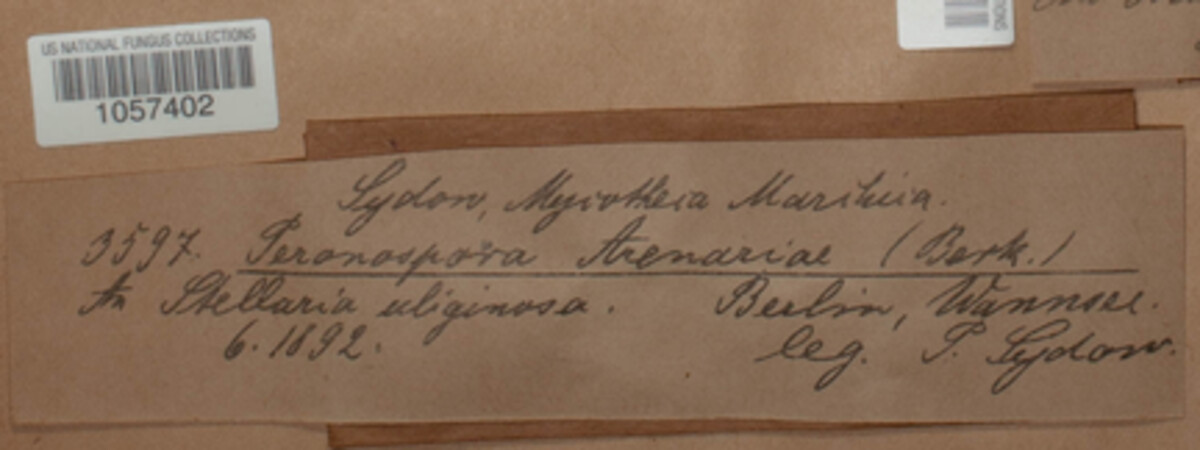 US NATIONAL FUNGUS COLLECTIONS
1057402
Sydow, Mycotheca Marchica.
3597. Peronospora Arenariae (Berk.)
An Stellaria uliginosa. Berlin, Wannsee.
6. 1892. leg. P. Sydow.